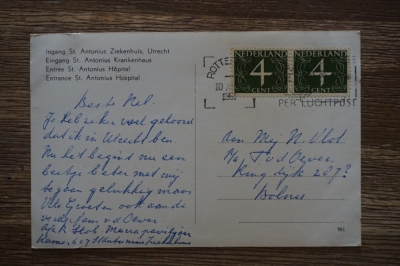 Ingang St. Antonius Ziekenhuis, Utrecht
Eingang St. Antonius Krankenhaus
Entrée St. Antonius Hôpital
Entrance St. Antonius Hospital
NEDERLAND
4
CENT
NEDERLAND
4
CENT
ROTTE
10
PER LUCHTPOST
Beste Nel.
Je heb zeker wel gehoord
dat ik in Utrecht ben.
Nu het begint nu een
beetje beter met mij
te gaan gelukkig maar
Vele Groeten ook aan de
v d Oever
Kamer 607 Antonius Ziekenhuis
Aan Mej N. Vlot.
v d Oever
Ringdijk 207
Bolnes